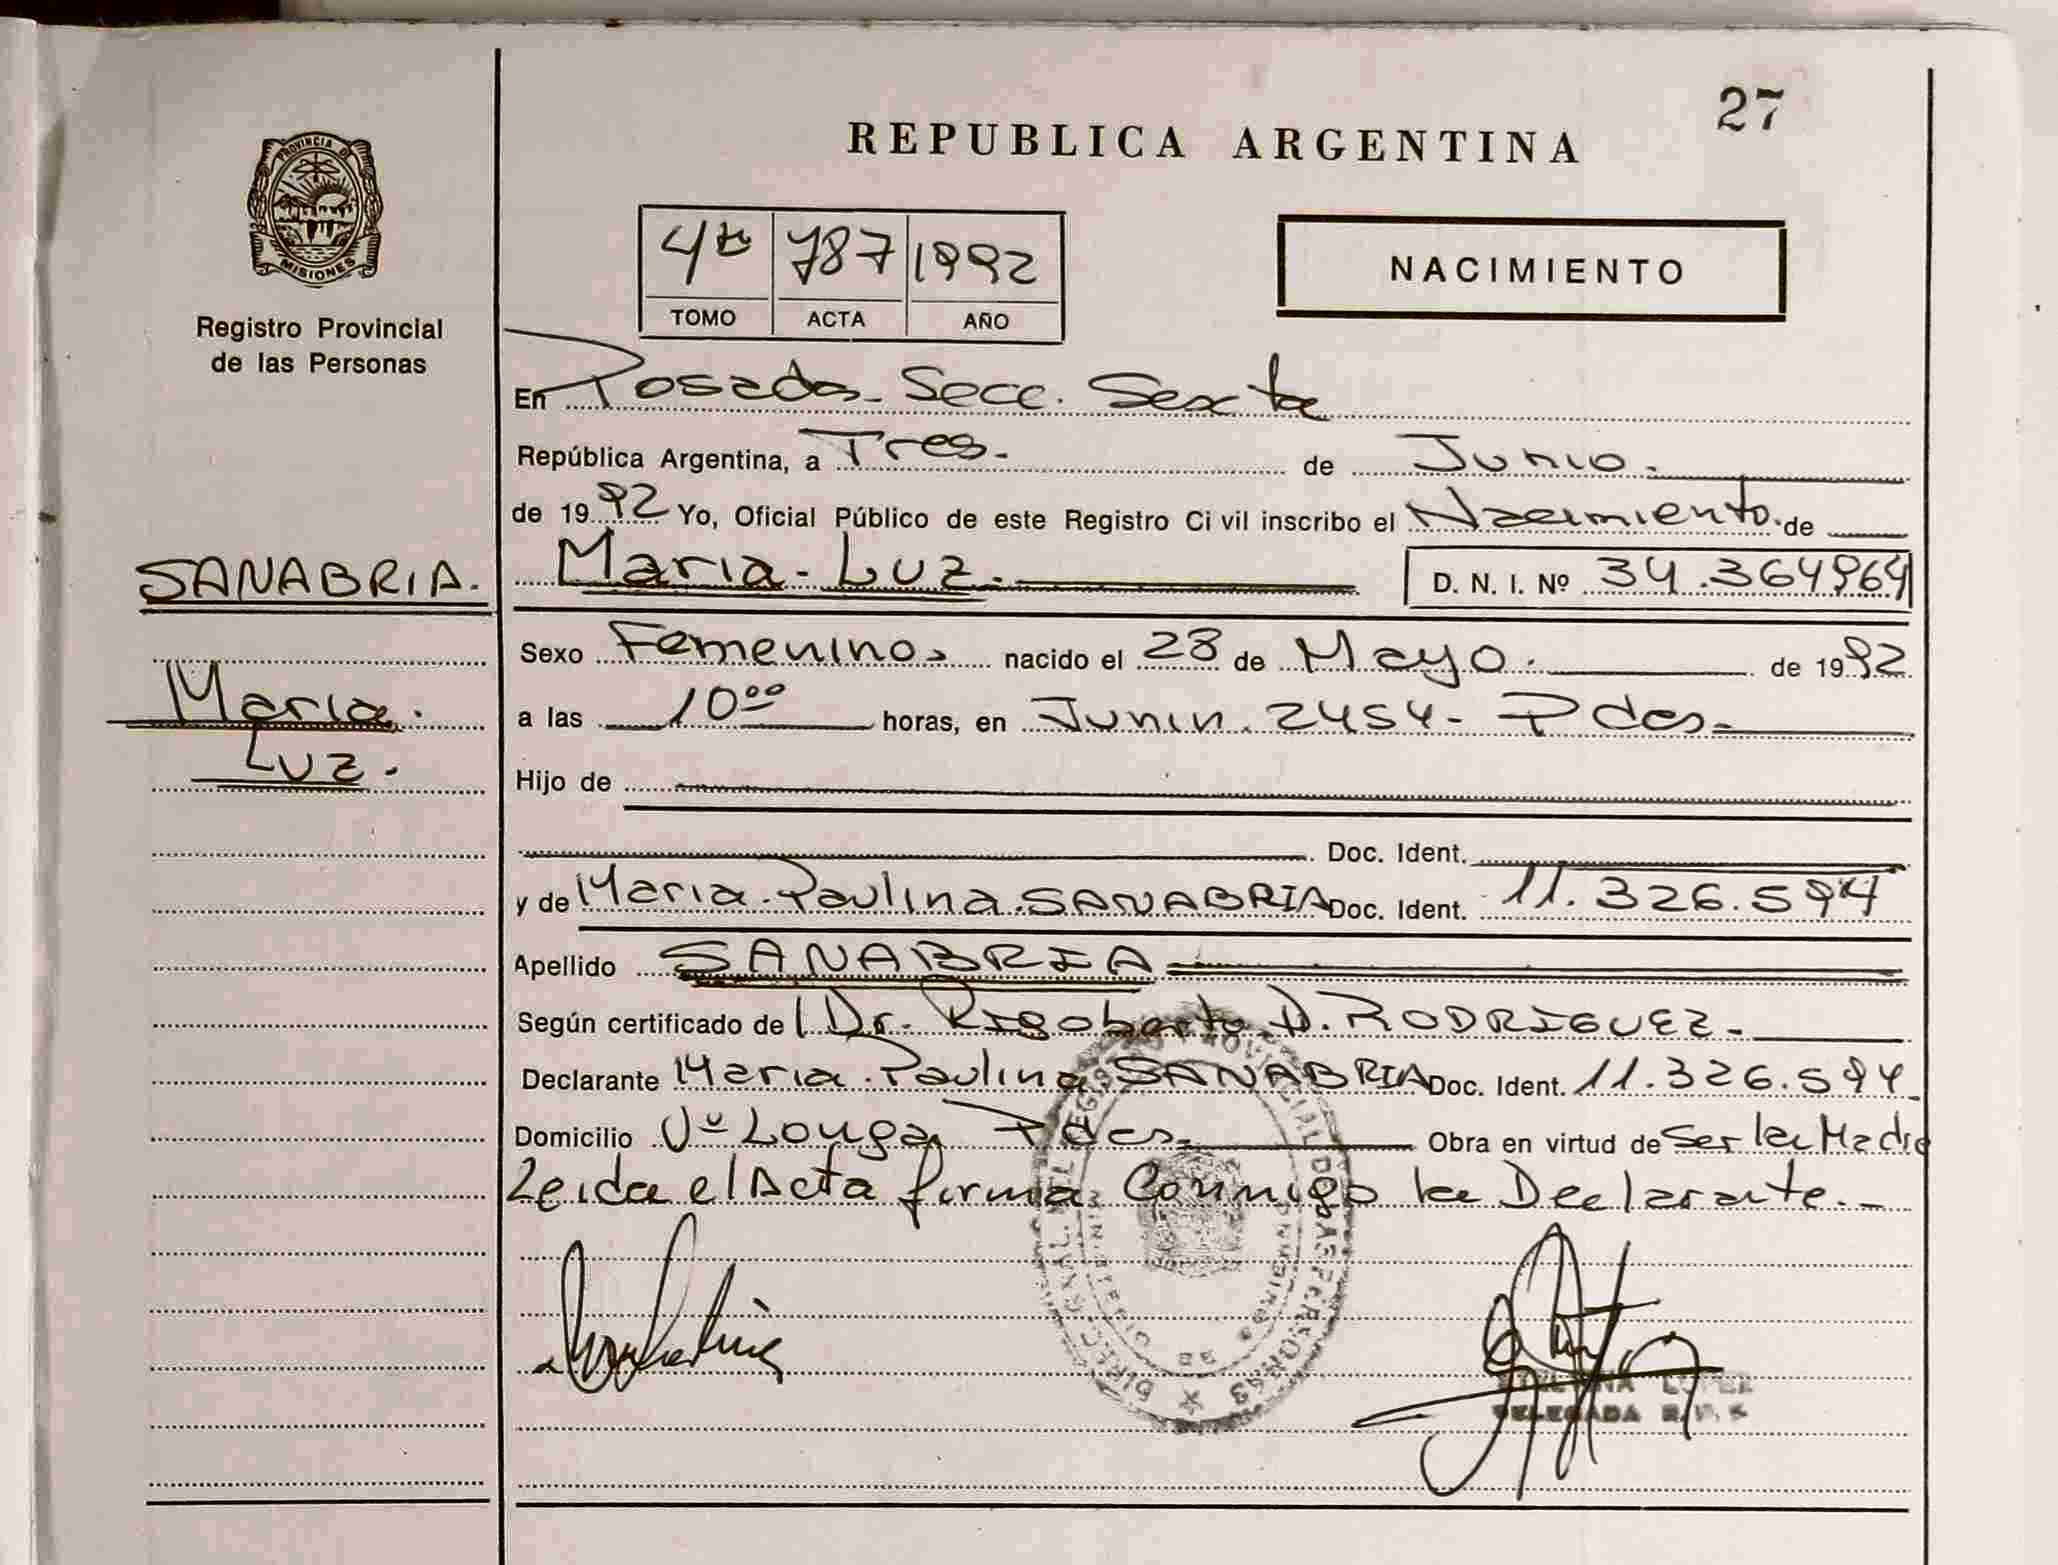 27
REPUBLICA ARGENTINA
PROVINCIA DE
MISIONES
Registro Provincial
de las Personas
787 1992
TOMO ACTA AÑO
NACIMIENTO
En Posadas - Secc. Sexta
República Argentina, a Tres - de Junio.
de 1992 Yo, Oficial Público de este Registro Civil inscribo el Nacimiento. de
SANABRIA.
Maria - Luz. D. N. I. Nº 34.364964
Maria.
Luz.-
Sexo Femenino nacido el 28 de Mayo. de 1992
a las 10⁰⁰ horas, en Junin. 2454 - Pdas-
Hijo de
Doc. Ident.
y de Maria. Paulina. SANABRIA Doc. Ident. 11.326.594
Apellido SANABRIA
Según certificado de Dr. Rigoberto D. RODRIGUEZ-
Declarante Maria. Paulina SANABRIA Doc. Ident. 11.326.594
Domicilio Vº Longa, Pdas- Obra en virtud de Ser la Madre
Leida el Acta firma Conmigo la Declarante.-
LOPEZ
DELEGADA